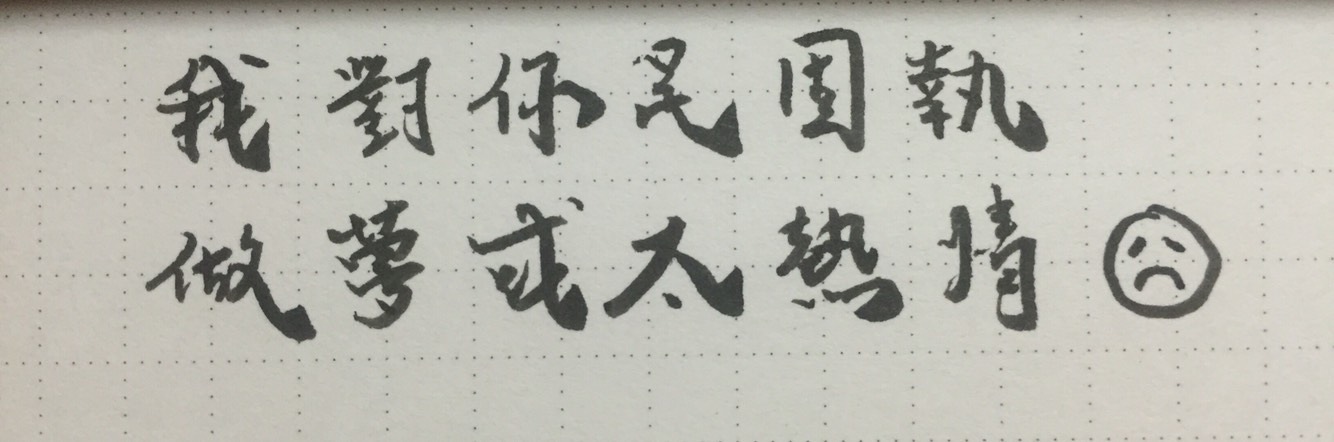 我對你是固執
做夢或太熱情